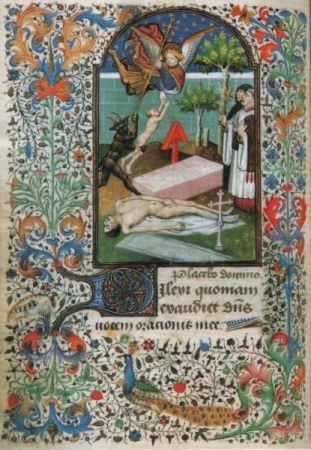 Placebo domino
Dilexi quoniam
exaudiet dn̄s
uocem orationis mee